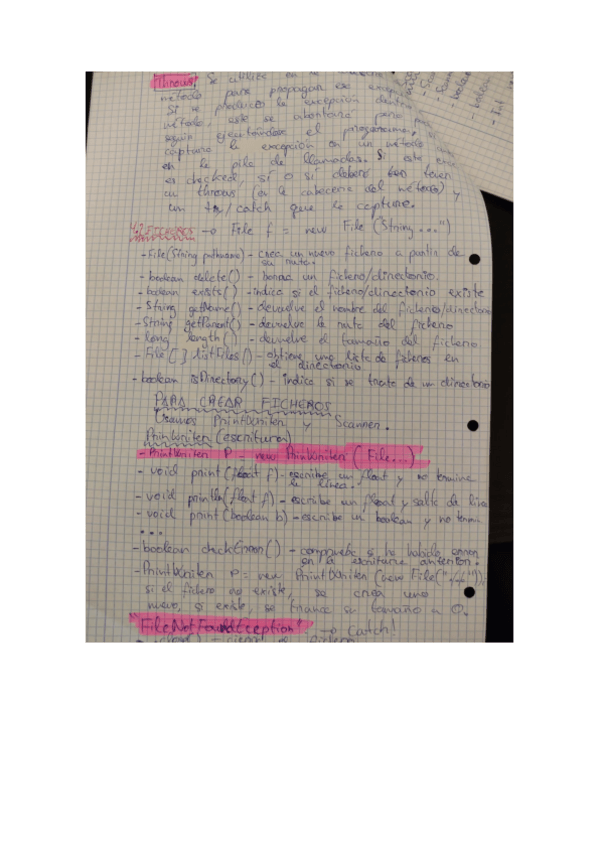 Throws: Se utiliza en la
método para propagar esa excep
Si se produce la excepción dentro
método, este se abortará pero
seguir ejecutándose el programa,
captura la excepción en un método
en la pila de llamadas. Si este
es checked, sí o sí deberá tener
un throws (en la cabecera del método) y
un try/catch que le capture.
4.2 FICHEROS → File f = new File (String ...")
- File(String pathname) - crea un nuevo fichero a partir de
su ruta.
- boolean delete() - borra un fichero/directorio.
- boolean exists() - indica si el fichero/directorio existe
- String getName() - devuelve el nombre del fichero/directorio
- String getParent() - devuelve la ruta del fichero
- long length() - devuelve el tamaño del fichero
- File [] listFiles() - obtiene una lista de ficheros en
el directorio
- boolean isDirectory() - Indica si se trata de un directorio
PARA CREAR FICHEROS
Usamos PrintWriter y Scanner.
PrintWriter (escritura)
- PrintWriter P = new PrintWriter ( File...)
- void print (float f) - escribe un float y no termina
la línea.
- void println (float f) - escribe un float y salta de línea
- void print (boolean b) - escribe un boolean y no termin
...
- boolean checkError() - comprueba si ha habido error
en la escritura anterior.
- PrintWriter P = new PrintWriter (new File("./.."));
si el fichero no existe, se crea uno
nuevo, si existe, se trunca su tamaño a 0.
"FileNotFoundException" → Catch!